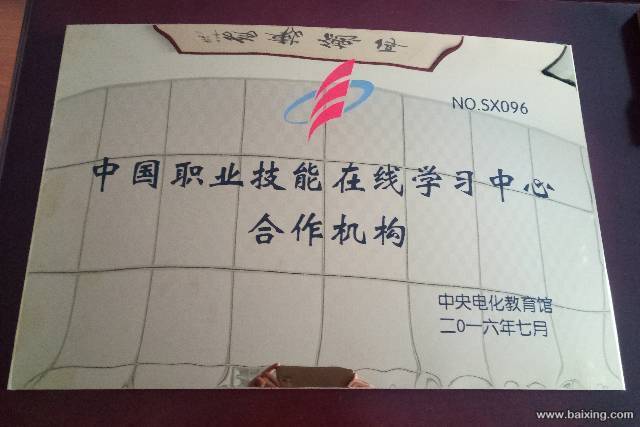 NO.SX096
中国职业技能在线学习中心
合作机构
中央电化教育馆
二0一六年七月
www.baixing.com